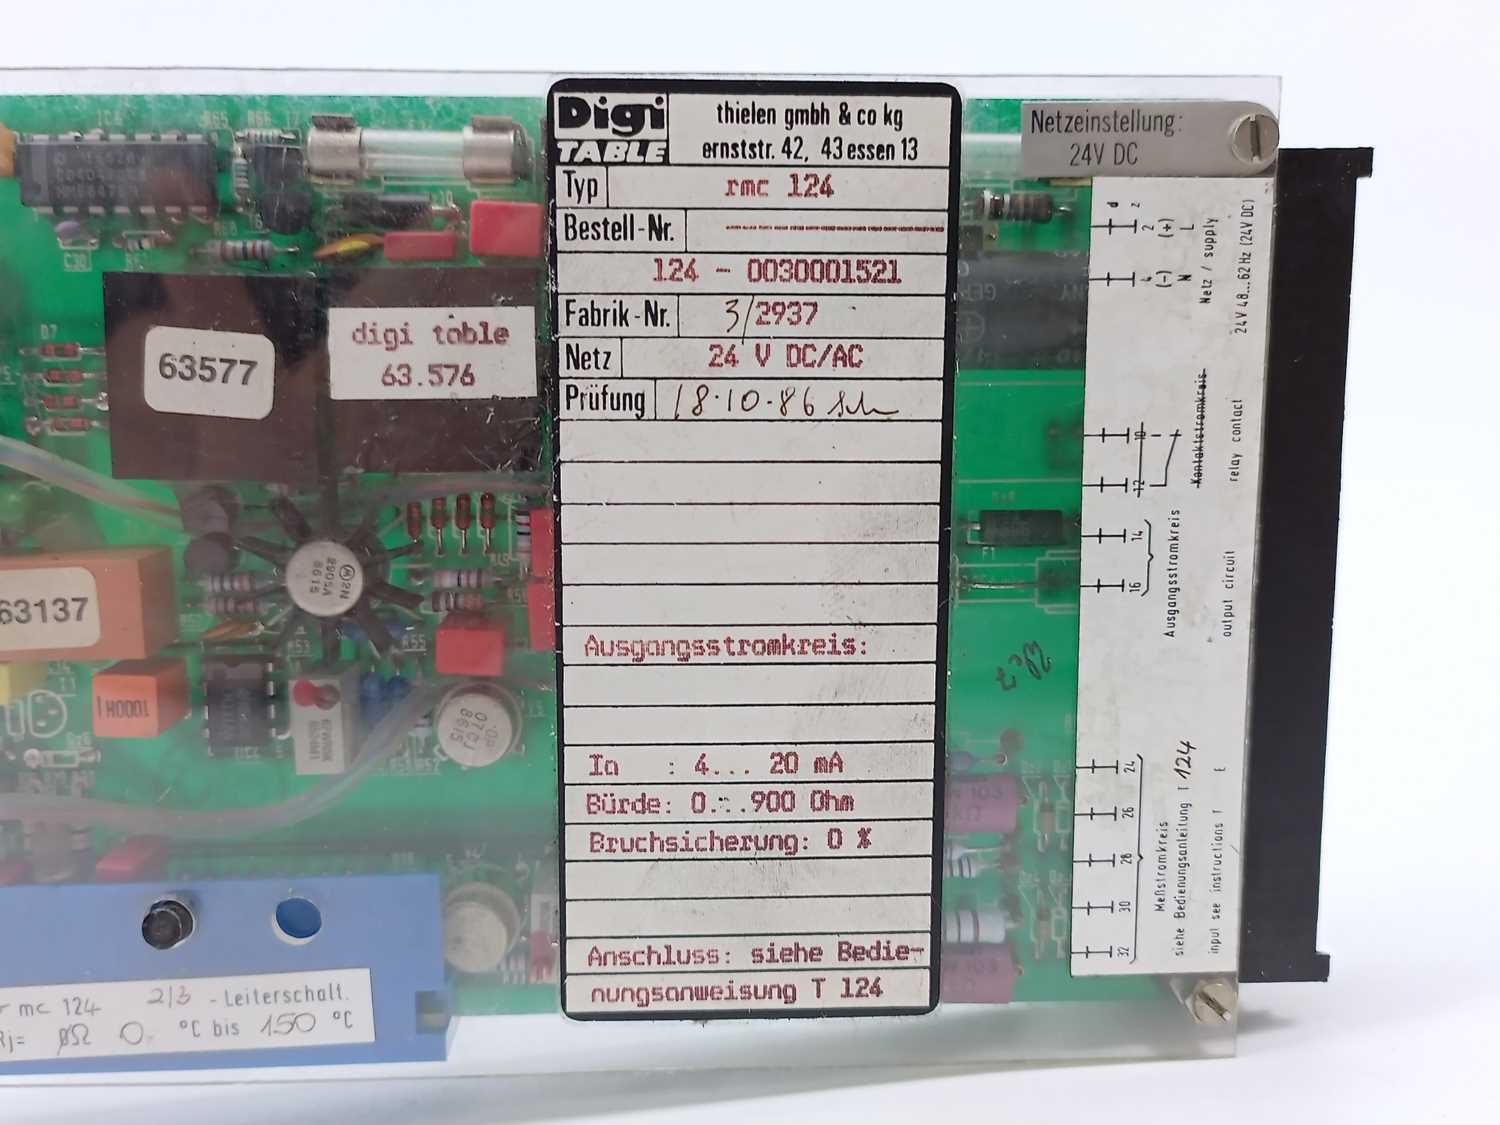 Digi
TABLE
thielen gmbh & co kg
ernststr. 42, 43 essen 13
Typ rmc 124
Bestell-Nr.
124 - 0030001521
Fabrik-Nr. 3/2937
Netz 24 V DC/AC
Prüfung 18.10.86
Ausgangsstromkreis:
Ia : 4... 20 mA
Bürde: 0...900 Ohm
Bruchsicherung: 0 %
Anschluss: siehe Bedie-
nungsanweisung T 124
Netzeinstellung:
24V DC
d z
2 (+) L
4 (-) N
Netz / supply
24V 48...62Hz (24V DC)
10
12
Kontaktstromkreis
relay contact
14
16
Ausgangsstromkreis
output circuit
24
26
28
30
32
Meßstromkreis
siehe Bedienungsanleitung T 124
input see instructions T E
63577
digi table
63.576
63137
2N
2905A
8615
1000H
07CJ
8615
D7
C30
R60
R65
R66
R53
R55
F1
mc 124 2/3 -Leiterschalt.
Rj= 0Ω 0 °C bis 150 °C